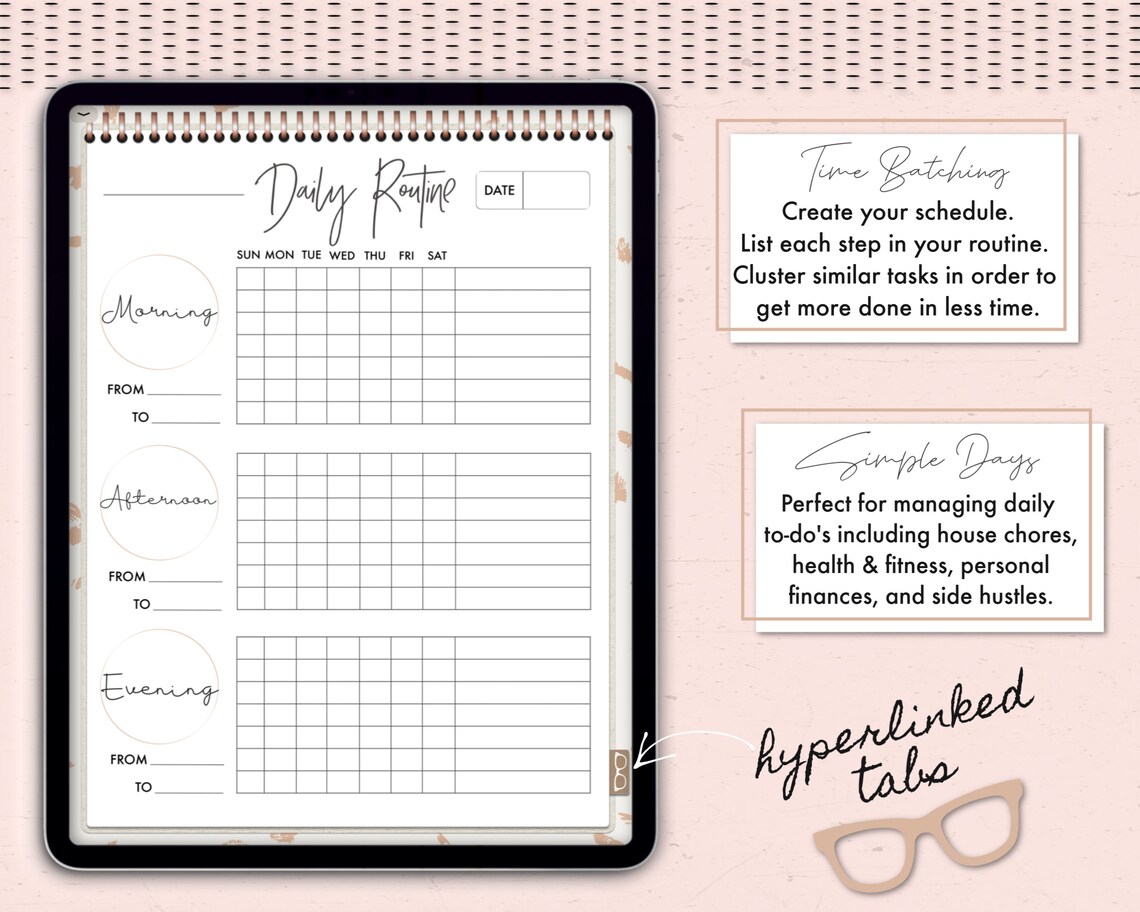 Daily Routine
DATE
SUN MON TUE WED THU FRI SAT
Morning
FROM
TO
Afternoon
FROM
TO
Evening
FROM
TO
Time Batching
Create your schedule.
List each step in your routine.
Cluster similar tasks in order to
get more done in less time.
Simple Days
Perfect for managing daily
to-do's including house chores,
health & fitness, personal
finances, and side hustles.
hyperlinked
tabs